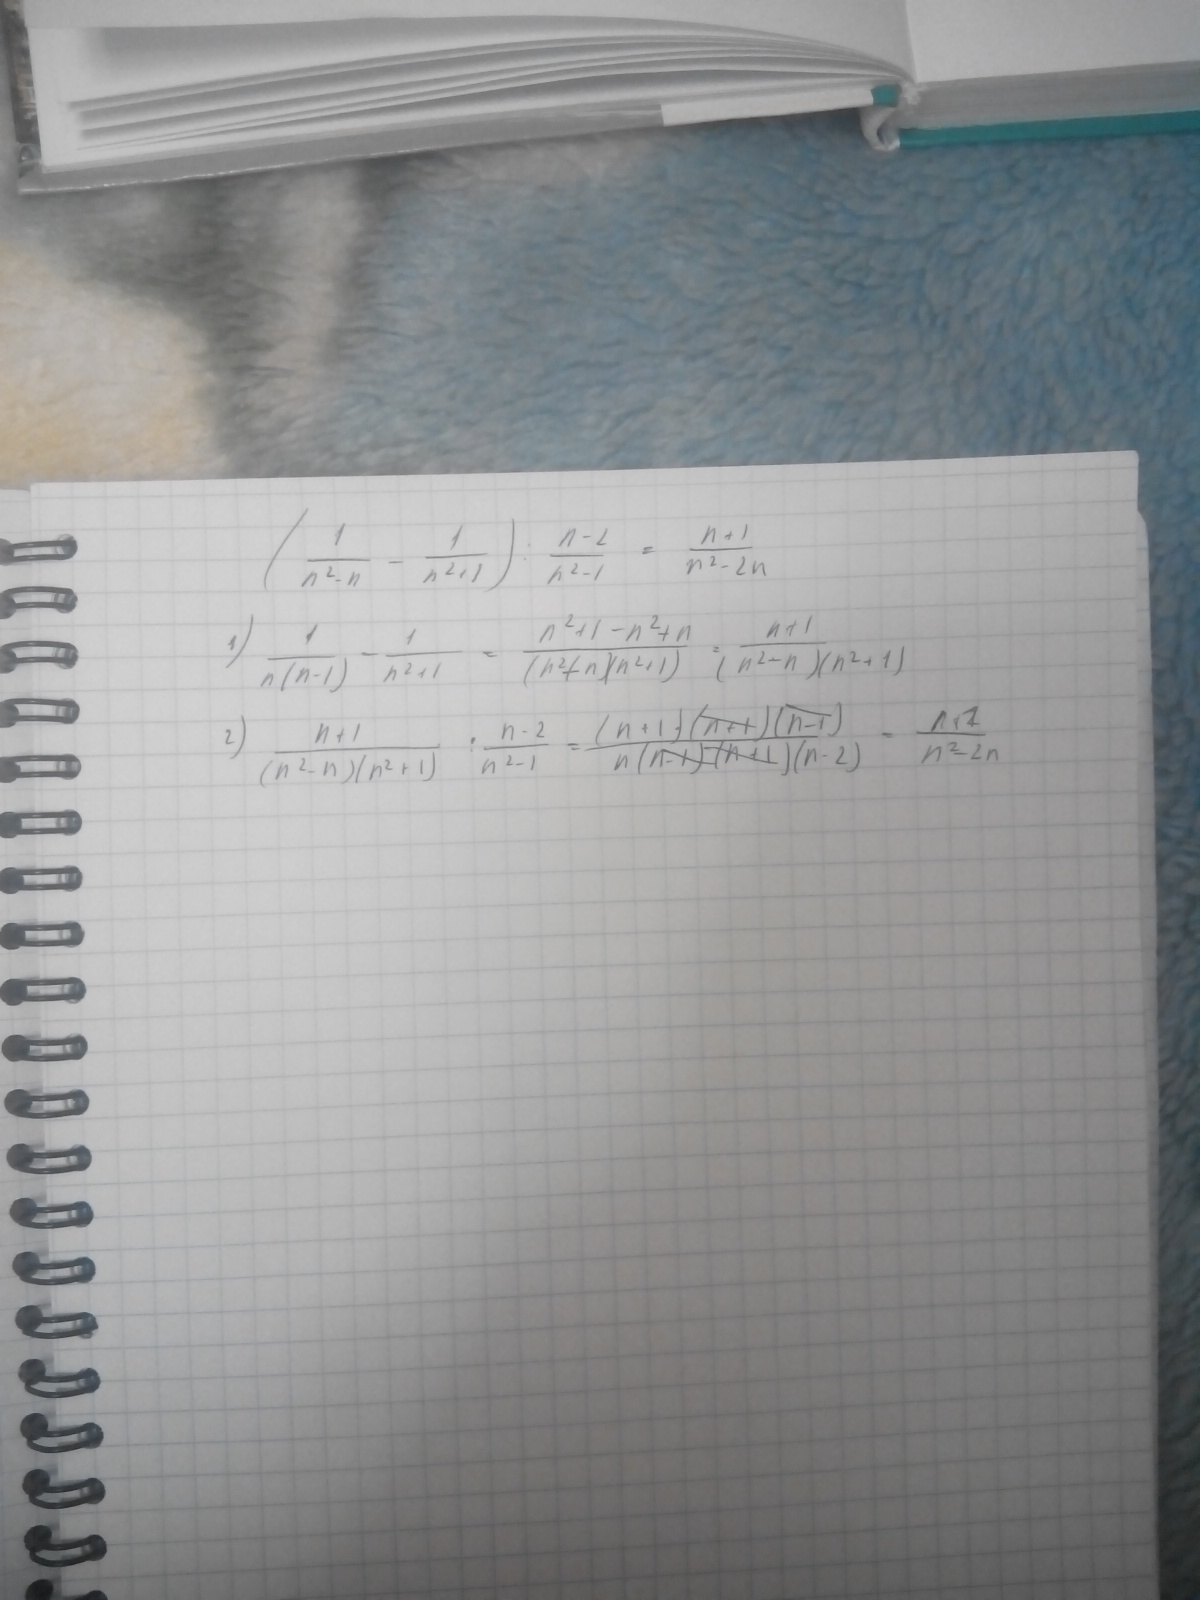 (1/(n²-n) - 1/(n²+1)) : (n-2)/(n²-1) = (n+1)/(n²-2n)
1) 1/(n(n-1)) - 1/(n²+1) = (n²+1-n²+n)/((n²-n)(n²+1)) = (n+1)/((n²-n)(n²+1))
2) (n+1)/((n²-n)(n²+1)) : (n-2)/(n²-1) = (n+1)(n+1)(n-1)/(n(n-1)(n+1)(n-2)) = (n+1)/(n²-2n)